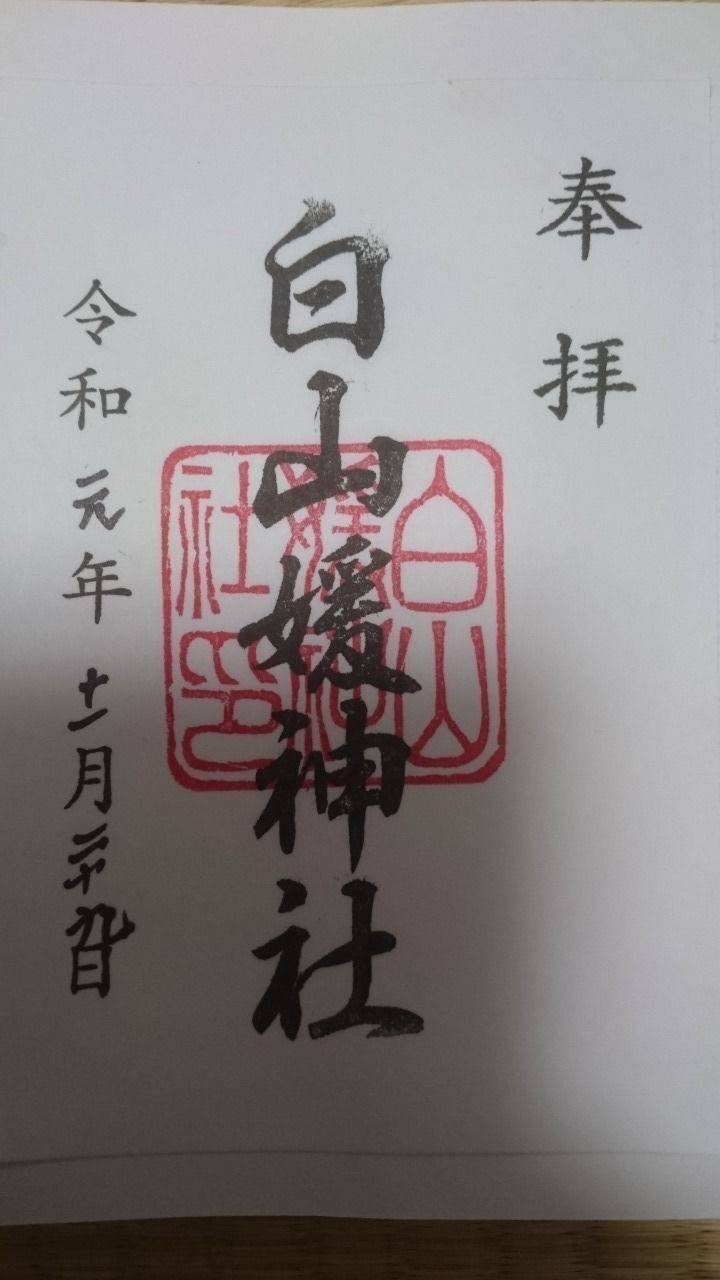 奉拝
白山媛神社
白山媛神社印
令和元年十一月二十九日